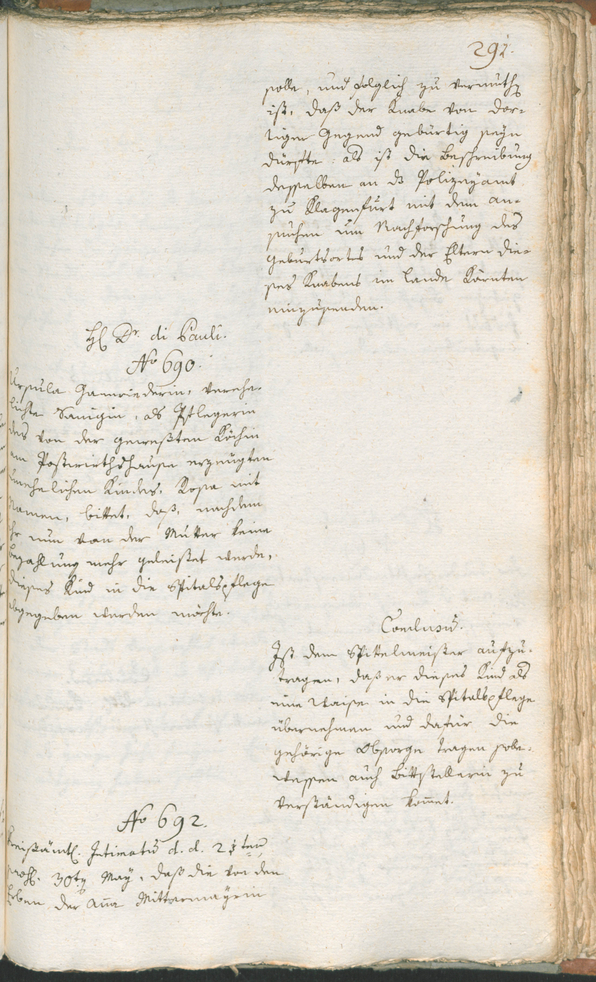 291.
solle, und folglich zu vermuth
ist, daß der Knabe von dor-
tiger Gegend gebürtig seyn
dürfte: als ist die Beschreibung
desselben an ds Polizeyamt
zu Klagenfurt mit dem An-
suchen um Nachforschung des
Geburtsortes und der Eltern die-
ses Knabens im Lande Kärnten
einzusenden.
H Dr. di Pauli.
No 690.
Ursula verehe-
lichte als Pflegerin
des von der geweßten Köchin
am Postwirthshause erzeugten
unehelichen Kindes, Rosa mit
Namen, bittet, daß, nachdem
ihr nun von der Mutter keine
Bezahlung mehr geleistet werde,
dieses Kind in die Spitalspflege
abgegeben werden möchte.
Conclusum.
Ist dem Spittelmeister aufzu-
tragen, daß er dieses Kind als
eine Waise in die Spitalspflege
übernehmen und dafür die
gehörige Obsorge tragen solle.
wessen auch Bittstellerin zu
verständigen kommt.
No 692.
Kreisämtl. Intimatum d. d. 21ten
praes. 30ten May, daß die von den
Erben der Anna Mittermayrin